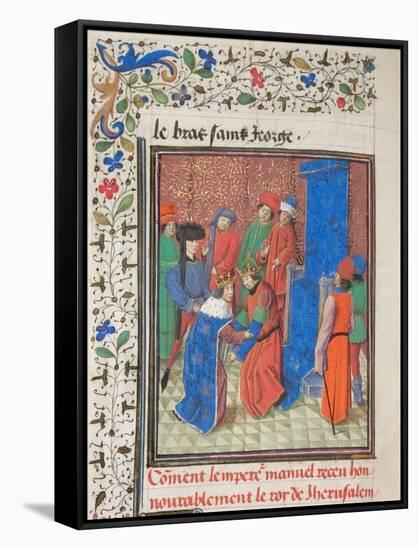 le brat saint George.
Co͂ment lempere᷑ manuel receu hon
nourablement le roy de Jherusalem